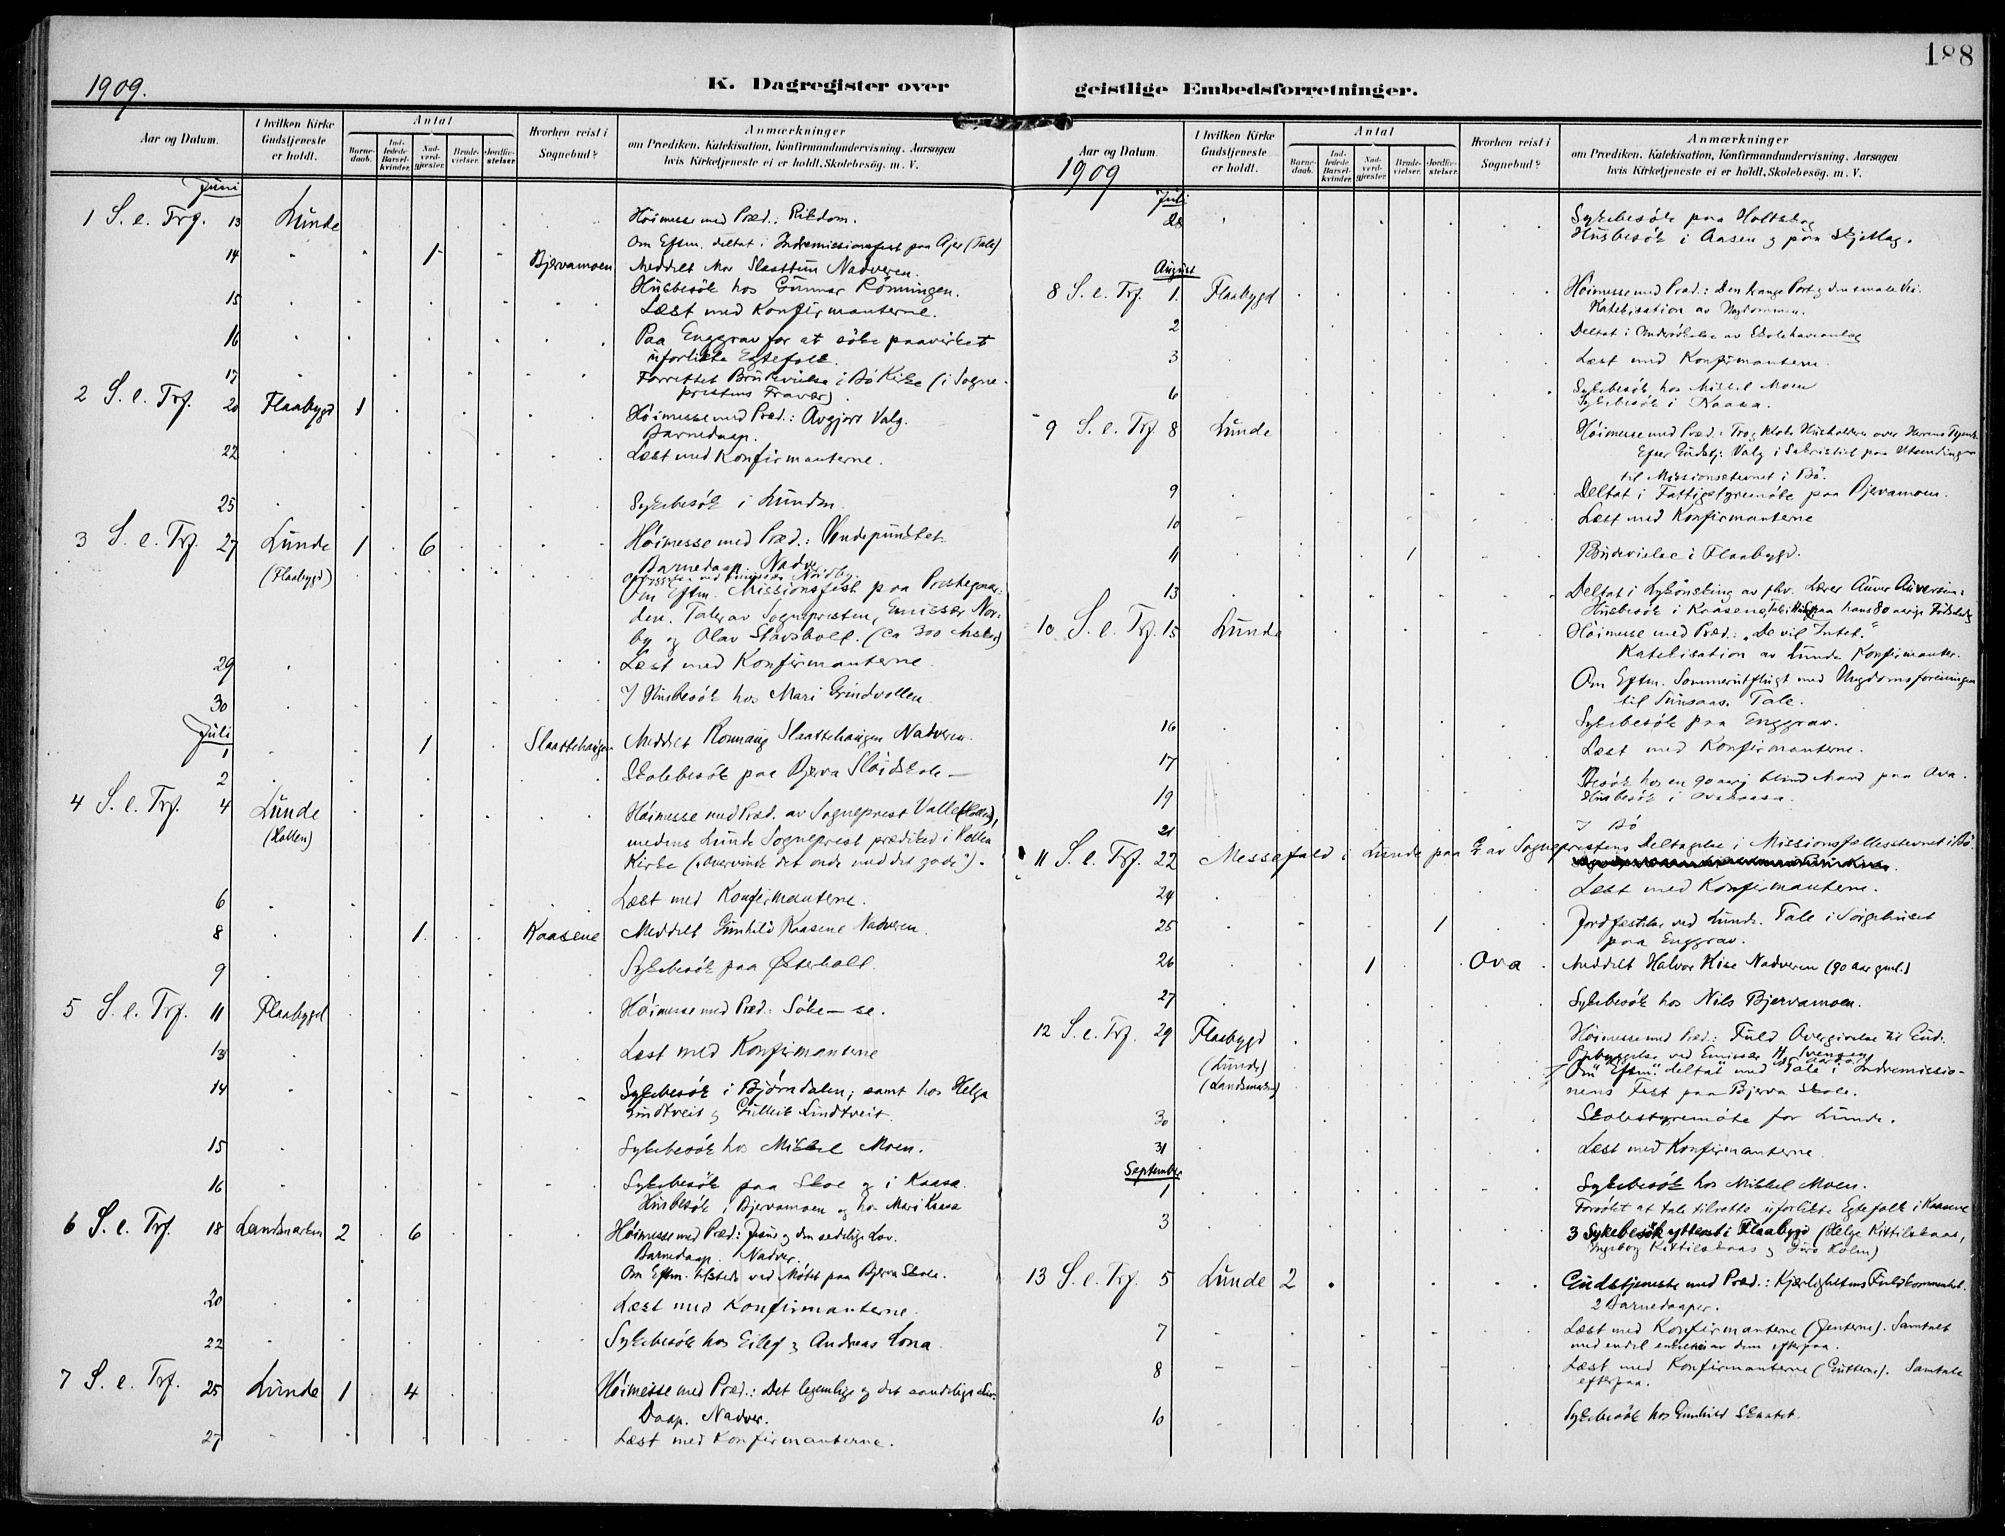 188
1909.
K. Dagregister over
geistlige Embedsforretninger.
Aar og Datum.
I hvilken Kirke Gudstjeneste er holdt.
Antal
Barnedaab.
Indledede Barselkvinder.
Nadverdgjester.
Brudevielser.
Jordfæstelser.
Hvorhen reist i Sognebud?
Anmærkninger
om Prædiken, Katekisation, Konfirmandundervisning, Aarsagen
hvis Kirketjeneste ei er holdt, Skolebesøg, m. V.
Juni
1 S. e. Trf. 13 Lunde Høimesse med Præd.: Rikdom.
Om Eftm. deltat i Indremissionsfest paa (Tale)
14 1 Bjervamoen Meddelt Mor Slaattun Nadveren.
Husbesök hos Gunnar Rönningen.
15 Læst med Konfirmanterne.
16 Paa Enggrav for at söke paavirket
uforlikte Egtefolk.
17 Forrettet Brudevielse i Bø Kirke (i Sogne-
prestens Fravær).
2 S. e. Trf. 20 Flaabygd 1 Høimesse med Præd.: Avgjort Valg.
Barnedaap.
22 Læst med Konfirmanterne.
25 Sykebesök i Lunden.
3 S. e. Trf. 27 Lunde 1 6 Høimesse med Præd.: Vendepunktet.
(Flaabygd) Barnedaap. Nadver.
Om Eftm. Missionsfest paa Prestegaar-
den. Taler av Sognepresten, Emissær Nor-
by og Olav Stavsholt. (ca 300 Msker)
29 Læst med Konfirmanterne.
30 I Husbesök hos Mari Grindvollen.
Juli
1 1 Slaattehaugen Meddelt Ronnaug Slaattehaugen Nadveren.
2 Skolebesök paa Bjerva Sløidskole —
4 S. e. Trf. 4 Lunde Høimesse med Præd. av Sogneprest Valle (Hollen),
(Hollen) medens Lunde Sogneprest prædiked i Hollen
Kirke („Overvinde det onde med det gode").
6 Læst med Konfirmanterne.
8 1 Kaasene Meddelt Gunhild Kaasene Nadveren.
9 Sykebesök paa Østerholt.
5 S. e. Trf. 11 Flaabygd Høimesse med Præd.: Söke — se.
13 Læst med Konfirmanterne
14 Sykebesök i Bjørndalen; samt hos Helge
Lindtveit og Gulleik Lindtveit.
15 Sykebesök hos Mikkel Moen.
16 Sykebesök paa Skoe og i Kaasa.
Husbesök i Bjervamoen og hos Mari Kaasa
6 S. e. Trf. 18 Landsmarken 2 6 Høimesse med Præd.: Jesus og den sedelige Lov.
Barnedaap. Nadver.
Om Eftm. tilstede ved Møtet paa Bjerva Skole.
20 Læst med Konfirmanterne.
22 Sykebesök hos Eilef og Andreas Lona.
7 S. e. Trf. 25 Lunde 1 4 Høimesse med Præd.: Det legemlige og det aandelige
Daap. Nadver.
27 Læst med Konfirmanterne.
Aar og Datum.
1909
I hvilken Kirke Gudstjeneste er holdt.
Antal
Barnedaab.
Indledede Barselkvinder.
Nadverdgjester.
Brudevielser.
Jordfæstelser.
Hvorhen reist i Sognebud?
Anmærkninger
om Prædiken, Katekisation, Konfirmandundervisning, Aarsagen
hvis Kirketjeneste ei er holdt, Skolebesøg, m. V.
Juli
28 Sykebesök paa Holtskog
Husbesök i Aasen og paa Skjellag.
August
8 S. e. Trf. 1. Flaabygd Høimesse med Præd.: Den trange Port og den smale Vei.
Katekisation av Ungdommen.
2 Deltat i Undersökelse av Skolehaveanlæg
3 Læst med Konfirmanterne
6 Sykebesök hos Mikkel Moen
Sykebesök i Kaasa.
9 S. e. Trf. 8 Lunde Høimesse med Præd.: Tro og klok Husholder over Herrens
Efter Gudstj. Valg i Sakristiet paa Utsendinger
til Missionsstevnet i Bö.
9 Deltat i Fattigstyremöte paa Bjervamoen.
10 Læst med Konfirmanterne
11 1 Brudevielse i Flaabygd.
13 Deltat i Lykönskning av fhv. Lærer
Husbesök i Kaasene paa hans 80 aarige Födselsdag
10 S. e. Trf. 15 Lunde Høimesse med Præd.: „De vil Intet."
Katekisation av Lunde Konfirmanter.
Om Eftm. Sommerutflugt med Ungdomsforeningen
til Sunsaas. Tale.
16 Sykebesök paa Enggrav.
17 Læst med Konfirmanterne.
19 Besök hos en 90 aarig blind Mand paa Ova.
Husbesök i Ovakaasa.
21 I Bö
11 S. e. Trf. 22 Messefald i Lunde paa Gr. av Sogneprestens Deltagelse i Missionsfællesstevnet i Bö.
24 Læst med Konfirmanterne.
25 1 Jordfestelse ved Lunde. Tale i Sörgehuset
paa Enggrav.
26 1 Ova Meddelt Halvor Kise Nadveren (90 aar gml.)
27 Sykebesök hos Nils Bjervamoen.
12 S. e. Trf. 29 Flaabygd Høimesse med Præd.: Fuld Overgivelse til Gud.
(Lunde) Opbyggelse ved Emissær H. Svensen
(Landsmarken) Om Eftm. deltat med Tale i Indremissio-
nens Fest paa Bjerva Skole.
30 Skolestyremöte for Lunde.
31 Læst med Konfirmanterne.
September
1 Sykebesök hos Mikkel Moen.
Forsökt at tale tilrette uforlikte Egtefolk i Kaasene
3 3 Sykebesök ytterst i Flaabygd (Helge Kittilskaas,
Ingebog Kittilskaas og Guro Holm)
13 S. e. Trf. 5 Lunde 2 Gudstjeneste med Præd.: Kjærlighetens Fuldkommenhet.
2 Barnedaaper.
7 Læst med Konfirmanterne (Jenterne). Samtalt
med endel enkelte av dem efterpaa.
8 Læst med Konfirmanterne (Gutterne). Samtale
efterpaa.
10 Sykebesök hos Gunhild Skaatet.